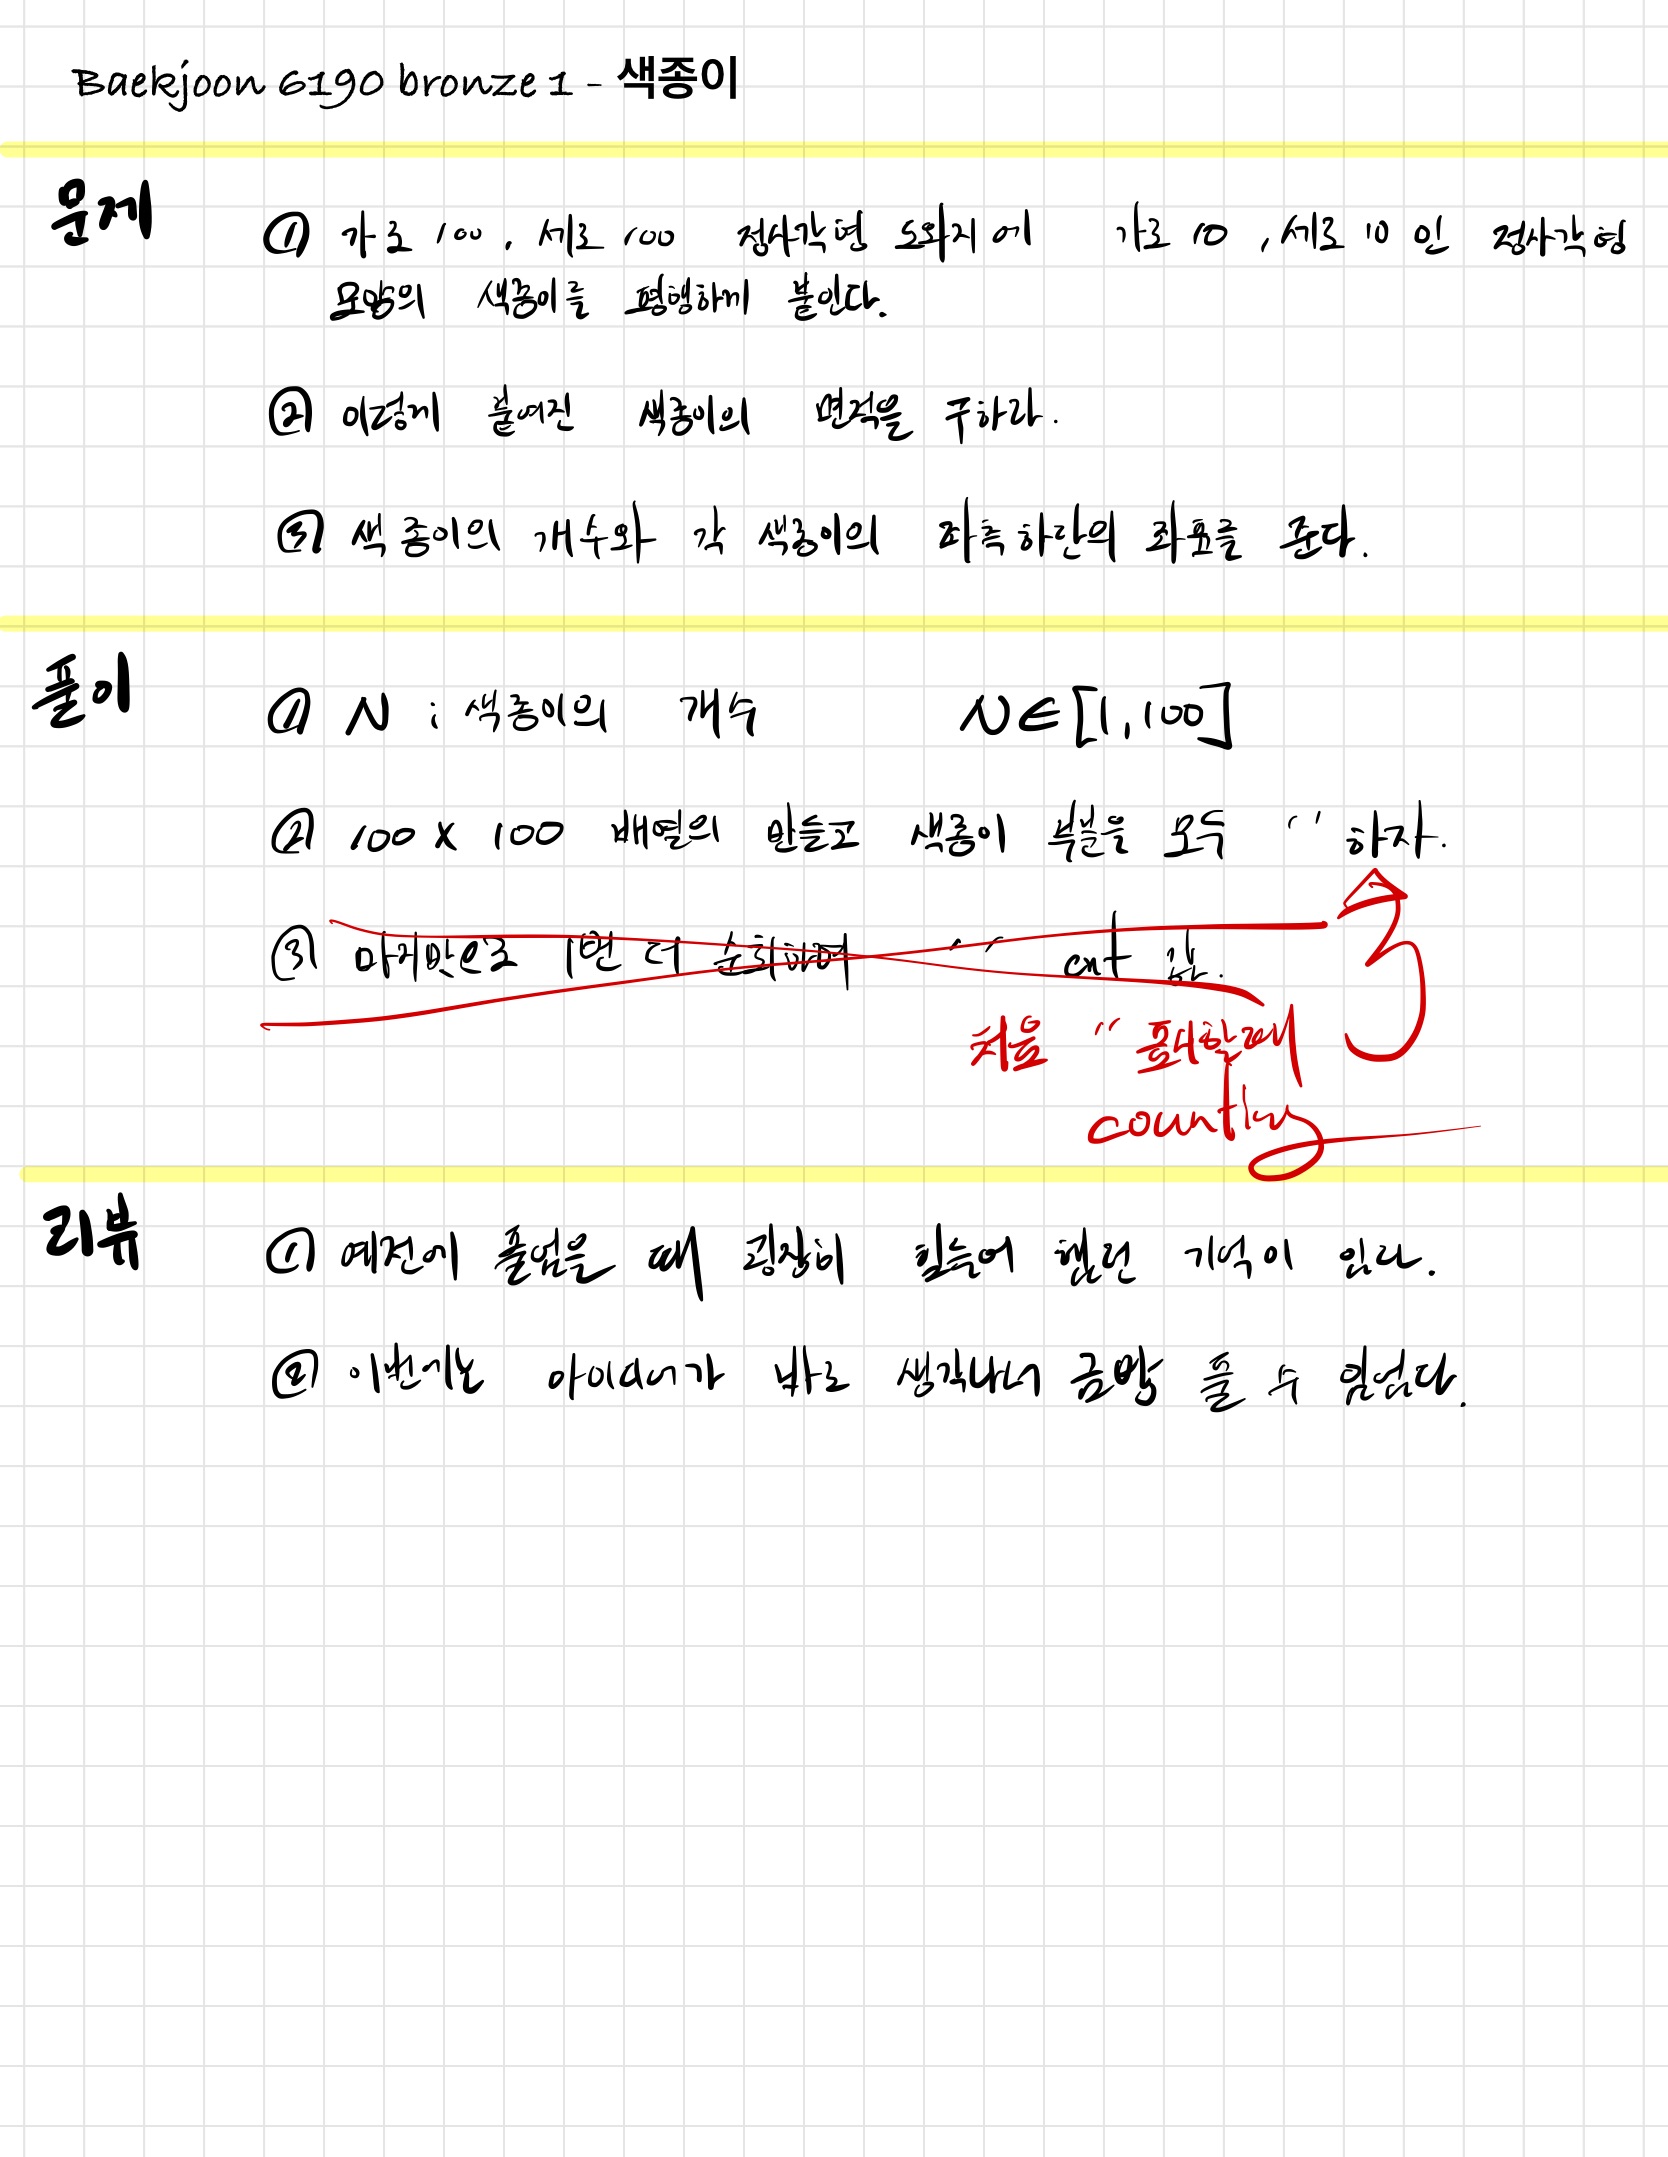 Baekjoon 6190 bronze 1 - 색종이
문제
① 가로 100, 세로 100 정사각형 도화지에 가로 10, 세로 10 인 정사각형
모양의 색종이를 평행하게 붙인다.
② 이렇게 붙여진 색종이의 면적을 구하라.
③ 색종이의 개수와 각 색종이의 좌측하단의 좌표를 준다.
풀이
① N : 색종이의 개수 N∈[1,100]
② 100 x 100 배열의 만들고 색종이 부분을 모두 '1' 하자.
③ 마지막으로 1번 더 순회하며 cnt
처음 " 표시할때
counting
리뷰
① 예전에 풀었을 때 굉장히 힘들어 했던 기억이 있다.
② 이번에는 아이디어가 바로 생각나서 금방 풀 수 있었다.